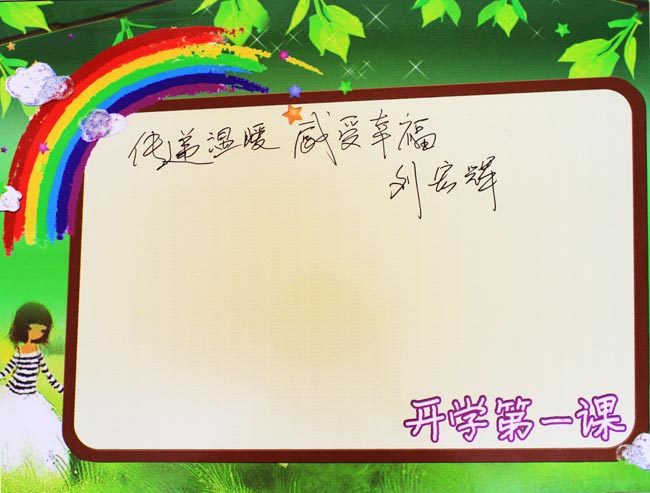 传递温暖 感受幸福
刘宏辉
开学第一课